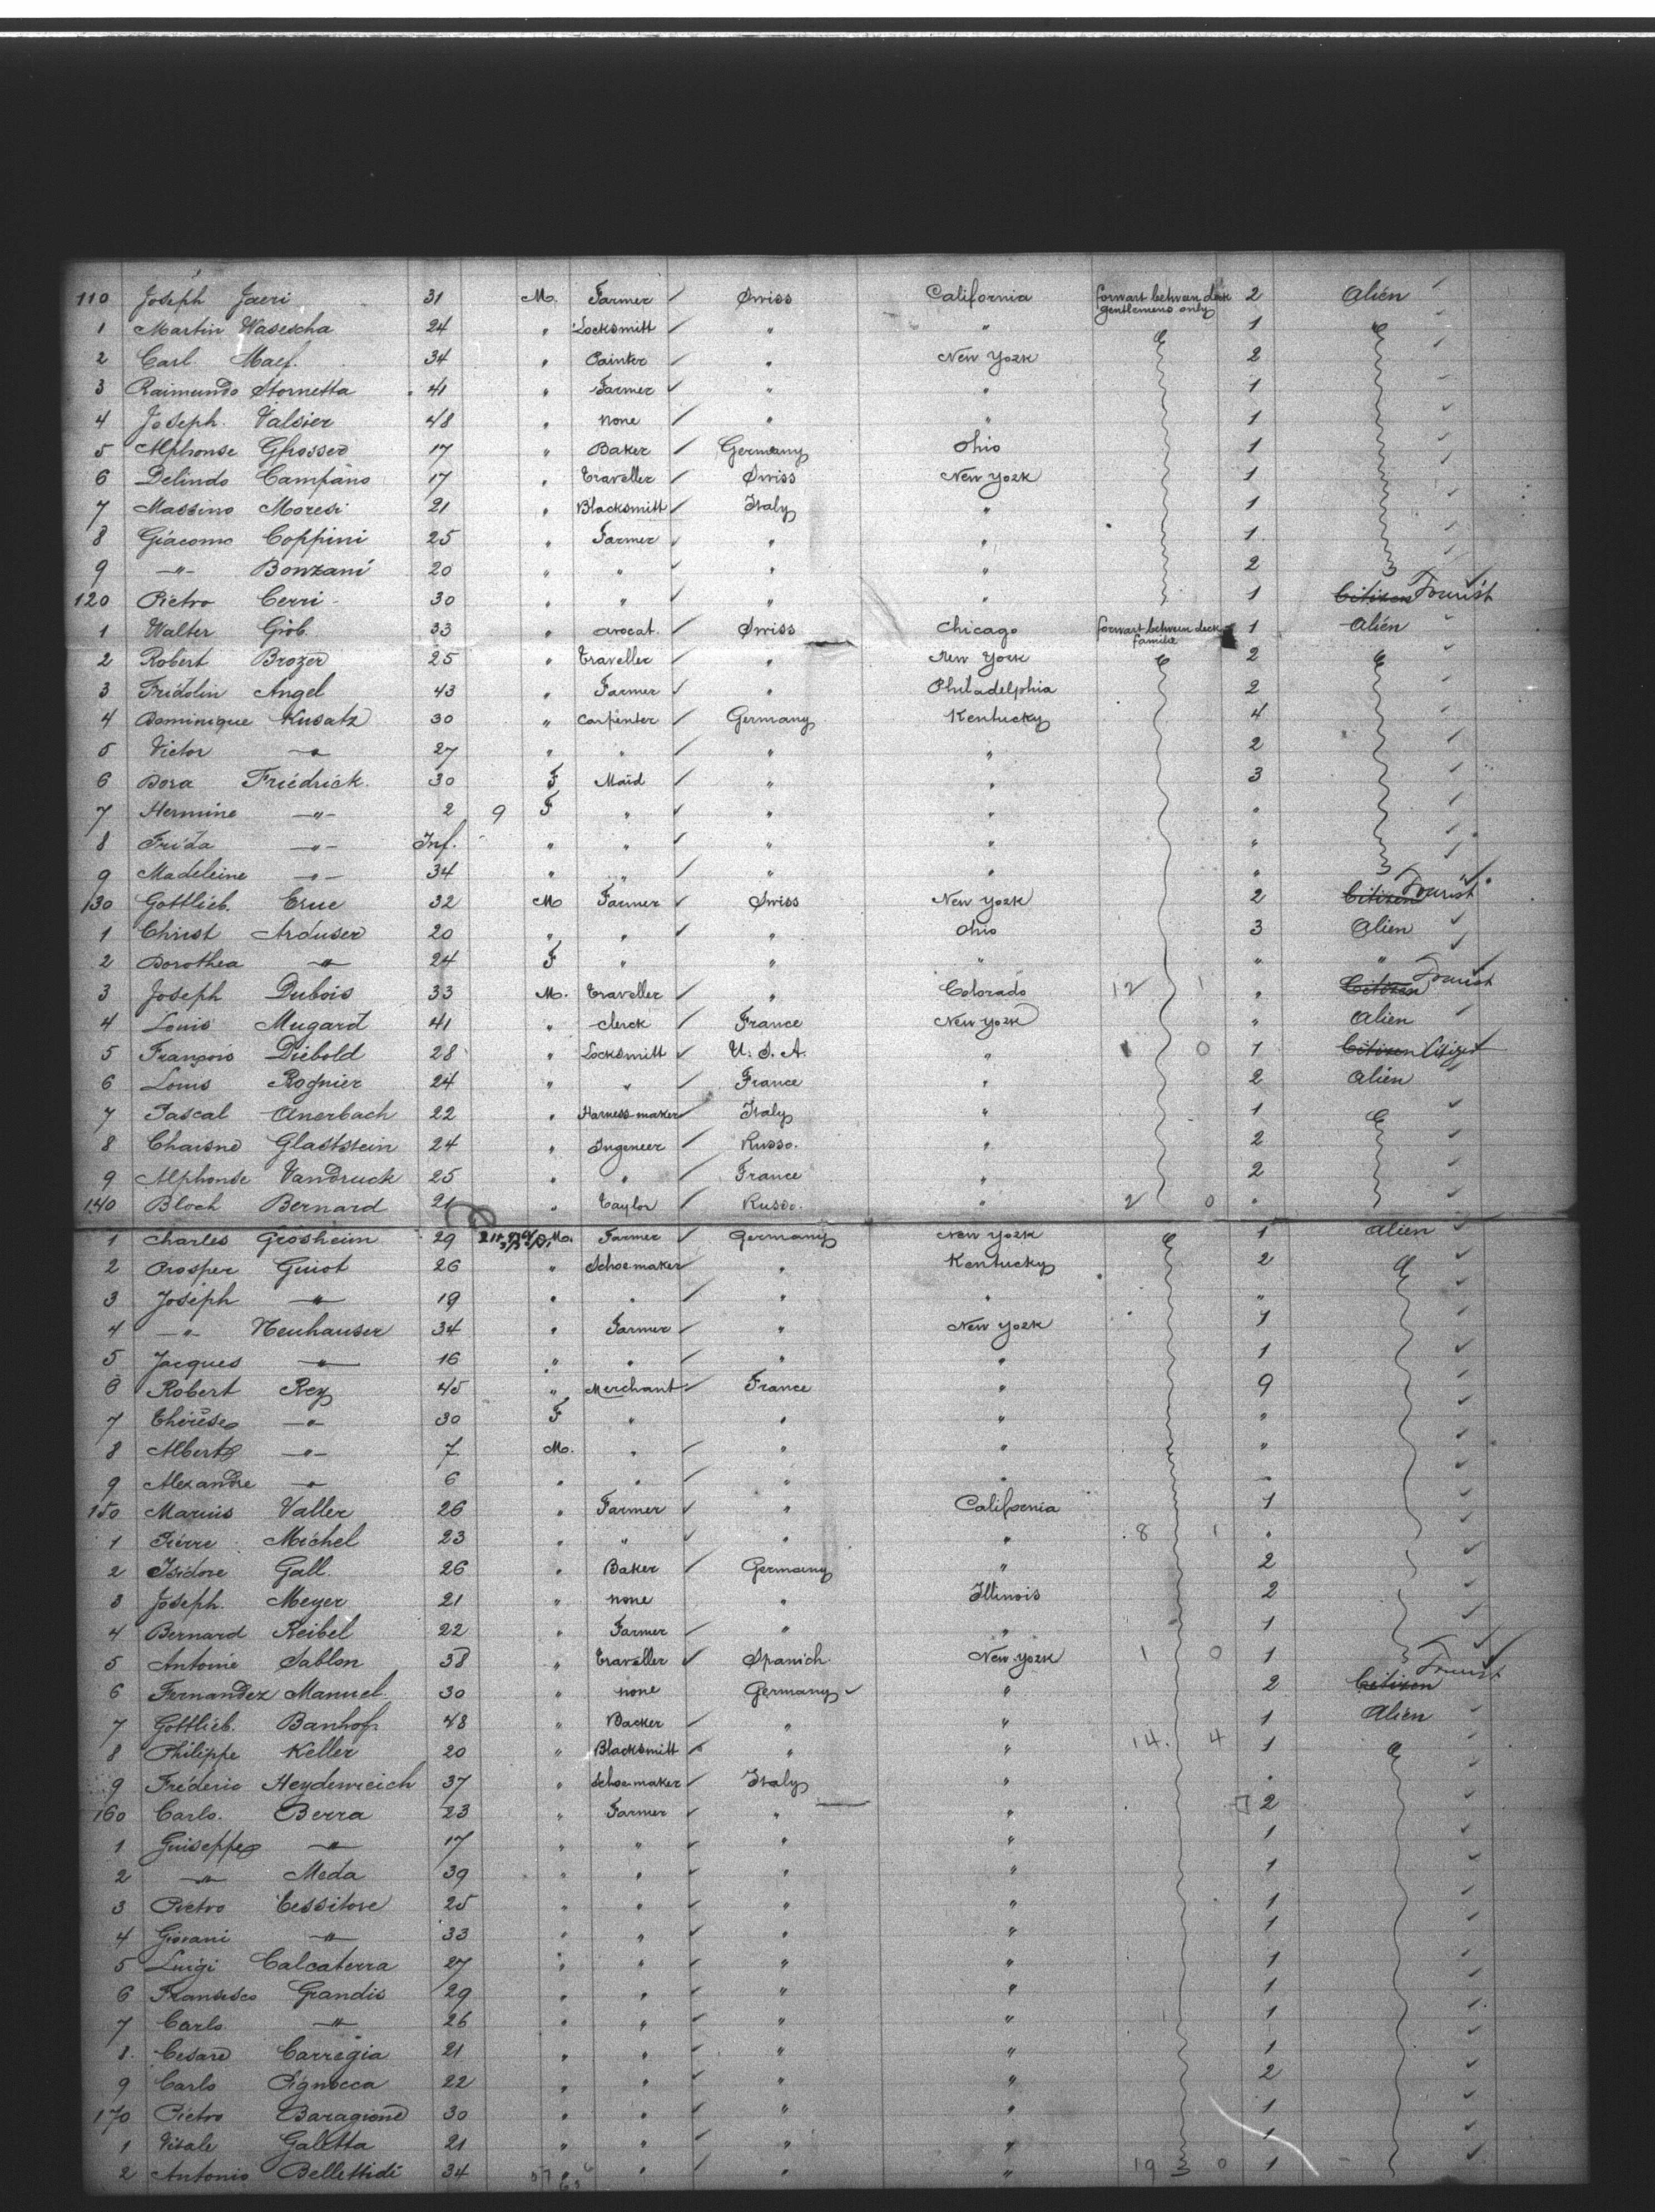 110 Joseph Jaeri 31 M. Farmer ✓ Swiss California forwart between deck gentlemens only 2 Alien ✓
1 Martin Wasescha 24 " Locksmitt ✓ " " 1 ✓
2 Carl. Maef. 34 " Painter ✓ " New York 2 ✓
3 Raimundo Stornetta 41 " Farmer ✓ " " 1 ✓
4 Joseph. Valsier 48 " none ✓ " " 1 ✓
5 Alphonse Grosser 17 " Baker ✓ Germany Ohio 1 ✓
6 Delindo Campana 17 " Traveller ✓ Swiss New York 1 ✓
7 Massino Moresi 21 " Blacksmitt ✓ Italy " 1 ✓
8 Giacomo Coppini 25 " Farmer ✓ " " 1 ✓
9 -"- Bonzani 20 " " ✓ " " 2 ✓
120 Pietro Cerri 30 " " ✓ " " 1 Citizen Tourist
1 Walter Grob. 33 " avocat. ✓ Swiss Chicago forwart between deck familie 1 Alien ✓
2 Robert Brozer 25 " Traveller ✓ " New York 2 ✓
3 Fridolin Angel 43 " Farmer ✓ " Philadelphia 2 ✓
4 Dominique Kusatz 30 " Carpenter ✓ Germany Kentucky 4 ✓
5 Victor -"- 27 " " ✓ " " 2 ✓
6 Dora Friedrick. 30 F Maid ✓ " " 3 ✓
7 Hermine -"- 2 9 F " ✓ " " " ✓
8 Frida -"- Inf. " " ✓ " " " ✓
9 Madeleine -"- 34 " " ✓ " " " ✓
130 Gottlieb. Erne 32 M Farmer ✓ Swiss New York 2 Citizen Tourist
1 Christ Arduser 20 " " ✓ " Ohio 3 Alien ✓
2 Dorothea -"- 24 F " " " " " ✓
3 Joseph Dubois 33 M. Traveller ✓ " Colorado 12 1 " Citizen Tourist
4 Louis Mugard 41 " clerck ✓ France New York " Alien ✓
5 François Diebold 28 " Locksmitt ✓ U.S.A. " 1 0 1 Citizen Citizen
6 Louis Rognier 24 " " ✓ France " 2 Alien ✓
7 Pascal Anerbach 22 " Harness-maker ✓ Italy " 1 ✓
8 Chaisno Glaststein 24 " Ingeneer ✓ Russo. " 2 ✓
9 Alphonse Vandruck 25 " " ✓ France " 2 ✓
140 Bloch Bernard 21 " Taylor ✓ Russo. " 2 0 " ✓
1 Charles Grosheim 29 M. Farmer ✓ Germany New York 1 Alien ✓
2 Prosper Guiot 26 " Schoemaker ✓ " Kentucky 2 ✓
3 Joseph -"- 19 " " ✓ " " " ✓
4 -"- Neuhauser 34 " Farmer ✓ " New York 1 ✓
5 Jacques -"- 16 " " ✓ " " 1 ✓
6 Robert Rey 45 " Merchant ✓ France " 9 ✓
7 Thérèse -"- 30 F " " " " ✓
8 Albert -"- 7 M. " ✓ " " " ✓
9 Alexandre -"- 6 " " ✓ " " " ✓
150 Marius Valler 26 " Farmer ✓ " California 1 ✓
1 Pierre Michel 23 " " ✓ " " 8 1 " ✓
2 Isidore Gall. 26 " Baker ✓ Germany " 2 ✓
3 Joseph. Meyer 21 " none " Illinois 2 ✓
4 Bernard Reibel 22 " Farmer ✓ " " 1 ✓
5 Antoine Sablon 38 " Traveller ✓ Spanich New York 1 0 1 ✓
6 Fernandez Manuel. 30 " none Germany ✓ " 2 Citizen Tourist
7 Gottlieb. Banhof 48 " Backer ✓ " " 1 Alien ✓
8 Philippe Keller 20 " Blacksmitt ✓ " " 14. 4 1 ✓
9 Fréderic Heydenreich 37 " Schoemaker ✓ Italy " " ✓
160 Carlo. Berra 23 " Farmer ✓ " " 2 ✓
1 Guiseppe -"- 17 " " ✓ " " 1 ✓
2 -"- Meda 39 " " ✓ " " 1 ✓
3 Pietro Tessitore 25 " " ✓ " " 1 ✓
4 Giovani -"- 33 " " ✓ " " 1 ✓
5 Luigi Calcaterra 27 " " ✓ " " 1 ✓
6 Fransisco Grandis 29 " " ✓ " " 1 ✓
7 Carlo -"- 26 " " ✓ " " 1 ✓
8. Cesare Carregia 21 " " ✓ " " 1 ✓
9 Carlo Pignocca 22 " " ✓ " " 2 ✓
170 Pietro Baragione 30 " " ✓ " " 1 ✓
1 Vitale Galetta 21 " " ✓ " " 1 ✓
2 Antonio Bellettidi 34 " " ✓ " " 19 0 1 ✓